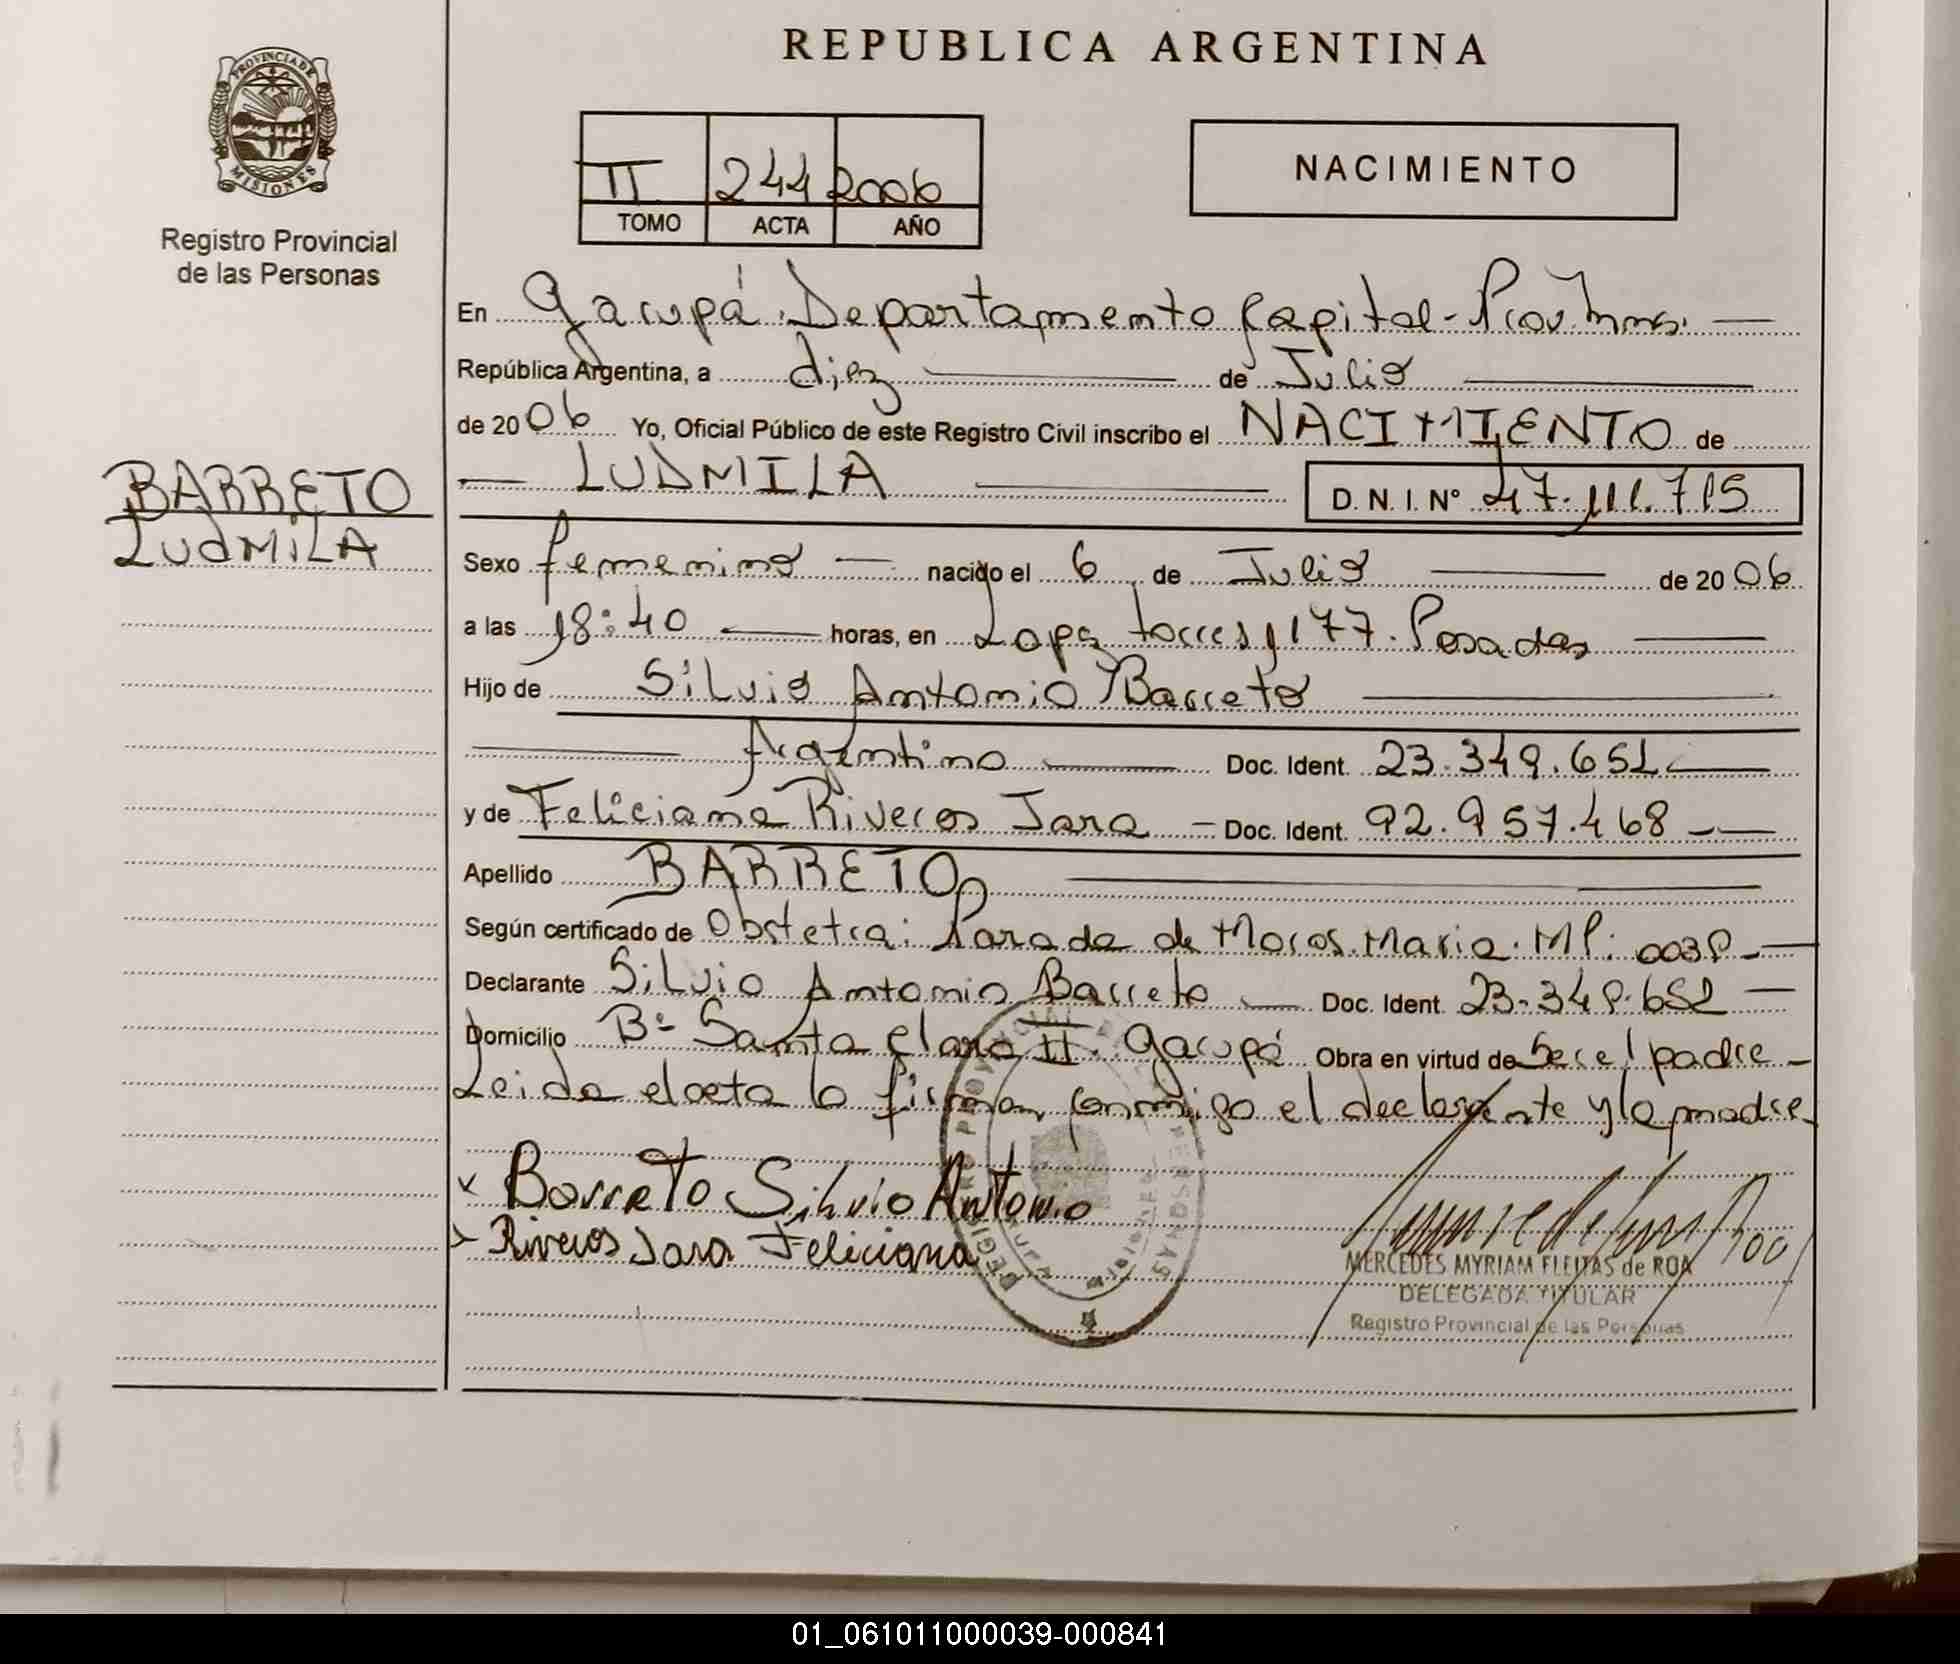 REPUBLICA ARGENTINA
PROVINCIA DE MISIONES
Registro Provincial
de las Personas
II 244 2006
TOMO ACTA AÑO
NACIMIENTO
En Garupá. Departamento Capital - Prov. Mnes.
República Argentina, a diez de Julio
de 2006 Yo, Oficial Público de este Registro Civil inscribo el NACIMIENTO de
LUDMILA D. N. I. N° 47.111.715
BARRETO
LUdMiLA
Sexo femenino nacido el 6 de Julio de 2006
a las 18:40 horas, en Lopez torres y 177. Posadas
Hijo de Silvio Antonio Barreto
Argentino Doc. Ident. 23.349.652
y de Feliciana Riveros Jara Doc. Ident. 92.957.468
Apellido BARRETO
Según certificado de Obstetra: Parada de Maria. MP:
Declarante Silvio Antonio Barreto Doc. Ident. 23.349.652
Domicilio B° Santa Clara II. Garupá Obra en virtud de Ser el padre
Leida el acta la firman conmigo el declarante y la madre
Barreto Silvio Antonio
Riveros Jara Feliciana
REGISTRO PROVINCIAL DE LAS PERSONAS
MERCEDES MYRIAM FLEITAS de ROA
DELEGADA TITULAR
Registro Provincial de las Personas
01_061011000039-000841